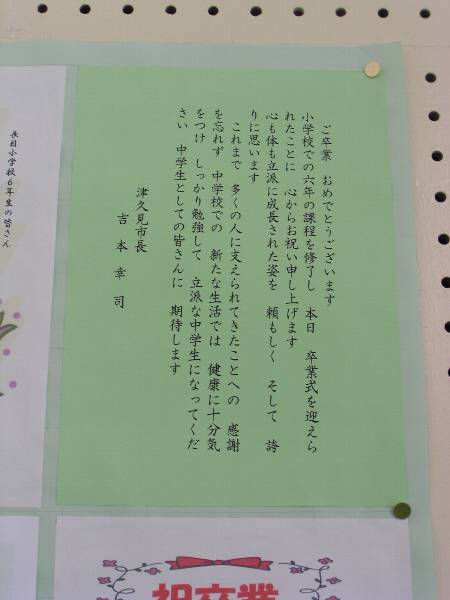 ご卒業　おめでとうございます
小学校での六年の課程を修了し　本日　卒業式を迎えら
れたことに　心からお祝い申し上げます
心も体も立派に成長された姿を　頼もしく　そして　誇
りに思います
これまで　多くの人に支えられてきたことへの　感謝
を忘れず　中学校での　新たな生活では　健康に十分気
をつけ　しっかり勉強して　立派な中学生になってくだ
さい　中学生としての皆さんに　期待します
津久見市長
吉本幸司
長目小学校６年生の皆さん
祝卒業